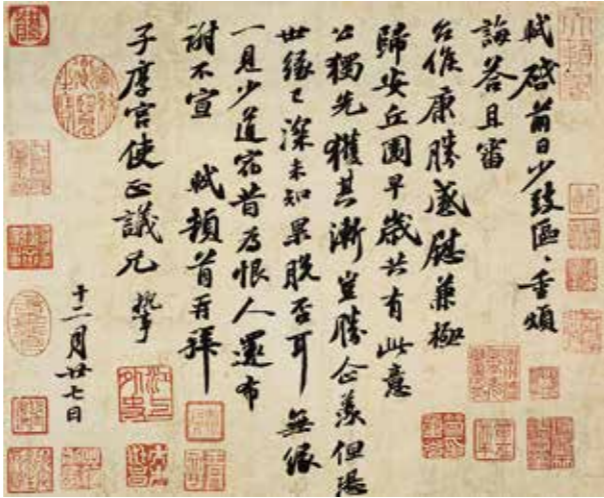 軾啓前日少致區〻重煩
誨答且審
台候康勝感慰兼極
歸安丘園早歲共有此意
公獨先獲其漸豈勝企羨但恐
世緣已深未知果脫否耳無緣
一見少道宿昔爲恨人還布
謝不宣 軾頓首再拜
子厚宮使正議兄 執事
十二月廿七日